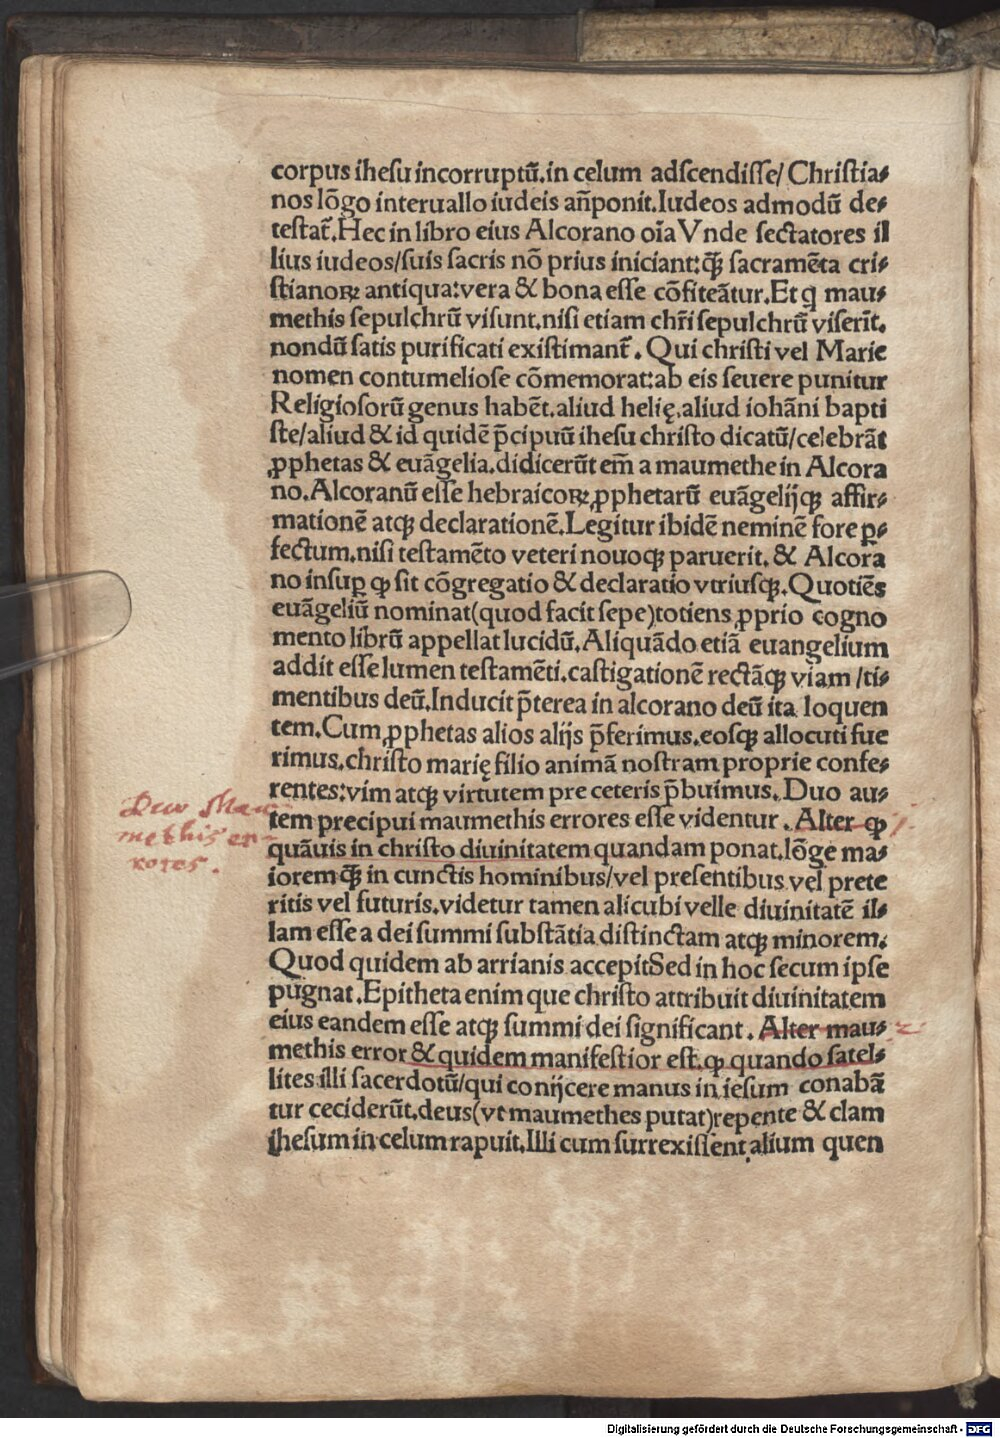 corpus ihesu incorruptū.in celum adſcendiſſe/ Chriſtia⸗
nos lōgo interuallo iudeis an̄ponit.Iudeos admodū de⸗
teſtat̄.Hec in libro eius Alcorano oīa Vnde ſectatores il
lius iudeos/ſuis ſacris nō prius iniciant:ꝙ̄ ſacramēta cri⸗
ſtianoꝝ antiqua:vera & bona eſſe cōfiteātur.Et q̄ mau⸗
methis ſepulchrū viſunt.niſi etiam chr̄i ſepulchrū viſerīt.
nondū ſatis purificati exiſtimant̄. Qui chriſti vel Marie
nomen contumelioſe cōmemorat:ab eis ſeuere punitur
Religioſorū genus habēt.aliud helię.aliud iohāni bapti
ſte/aliud & id quidē p̄cipuū iheſu chriſto dicatū/celebrāt
ꝓphetas & euāgelia.didicerūt em̄ a maumethe in Alcora
no.Alcoranū eſſe hebraicoꝝ ꝓphetarū euāgelijqꝫ affir⸗
mationē atqꝫ declarationē.Legitur ibidē neminē fore ꝑ⸗
fectum.niſi teſtamēto veteri nouoqꝫ paruerit. & Alcora
no inſuꝑ ꝙ ſit cōgregatio & declaratio vtriuſqꝫ.Quotiēs
euāgeliū nominat(quod facit ſepe)totiens ꝓprio cogno
mento librū appellat lucidū.Aliquādo etiā euangelium
addit eſſe lumen teſtamēti.caſtigationē rectāqꝫ viam /ti⸗
mentibus deū.Inducit p̄terea in alcorano deū ita loquen
tem.Cum ꝓphetas alios alijs p̄ferimus.eoſqꝫ allocuti fue
rimus.chriſto marię filio animā noſtram proprie confe⸗
rentes:vim atqꝫ virtutem pre ceteris p̄buimus. Duo au⸗
Duo Mau
methis er⸗
rores.
tem precipui maumethis errores eſſe videntur. Alter ꝙ 1
quāuis in chriſto diuinitatem quandam ponat.lōge ma⸗
iorem ꝙ̄ in cunctis hominibus/vel preſentibus vel prete
ritis vel futuris.videtur tamen alicubi velle diuinitatē il⸗
lam eſſe a dei ſummi ſubſtātia diſtinctam atqꝫ minorem.
Quod quidem ab arrianis accepitSed in hoc ſecum ipſe
pugnat.Epitheta enim que chriſto attribuit diuinitatem
eius eandem eſſe atqꝫ ſummi dei ſignificant. Alter mau⸗ 2
methis error & quidem manifeſtior eſt.ꝙ quando ſatel⸗
lites illi ſacerdotū/qui conijcere manus in ieſum conabā
tur ceciderūt.deus(vt maumethes putat)repente & clam
iheſum in celum rapuit.Illi cum ſurrexiſſent alium quen
Digitalisierung gefördert durch die Deutsche Forschungsgemeinschaft - DFG